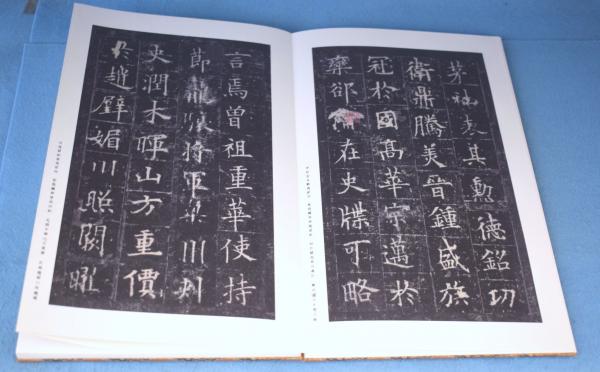 茅社表其勳德銘功
衛鼎騰美晉鍾盛族
冠於國高華宗邁於
欒郤備在史牒可略
言焉曾祖重華使持
節龍驤將軍梁州刾
史潤木暉山方重價
於趙璧媚川照闕曜